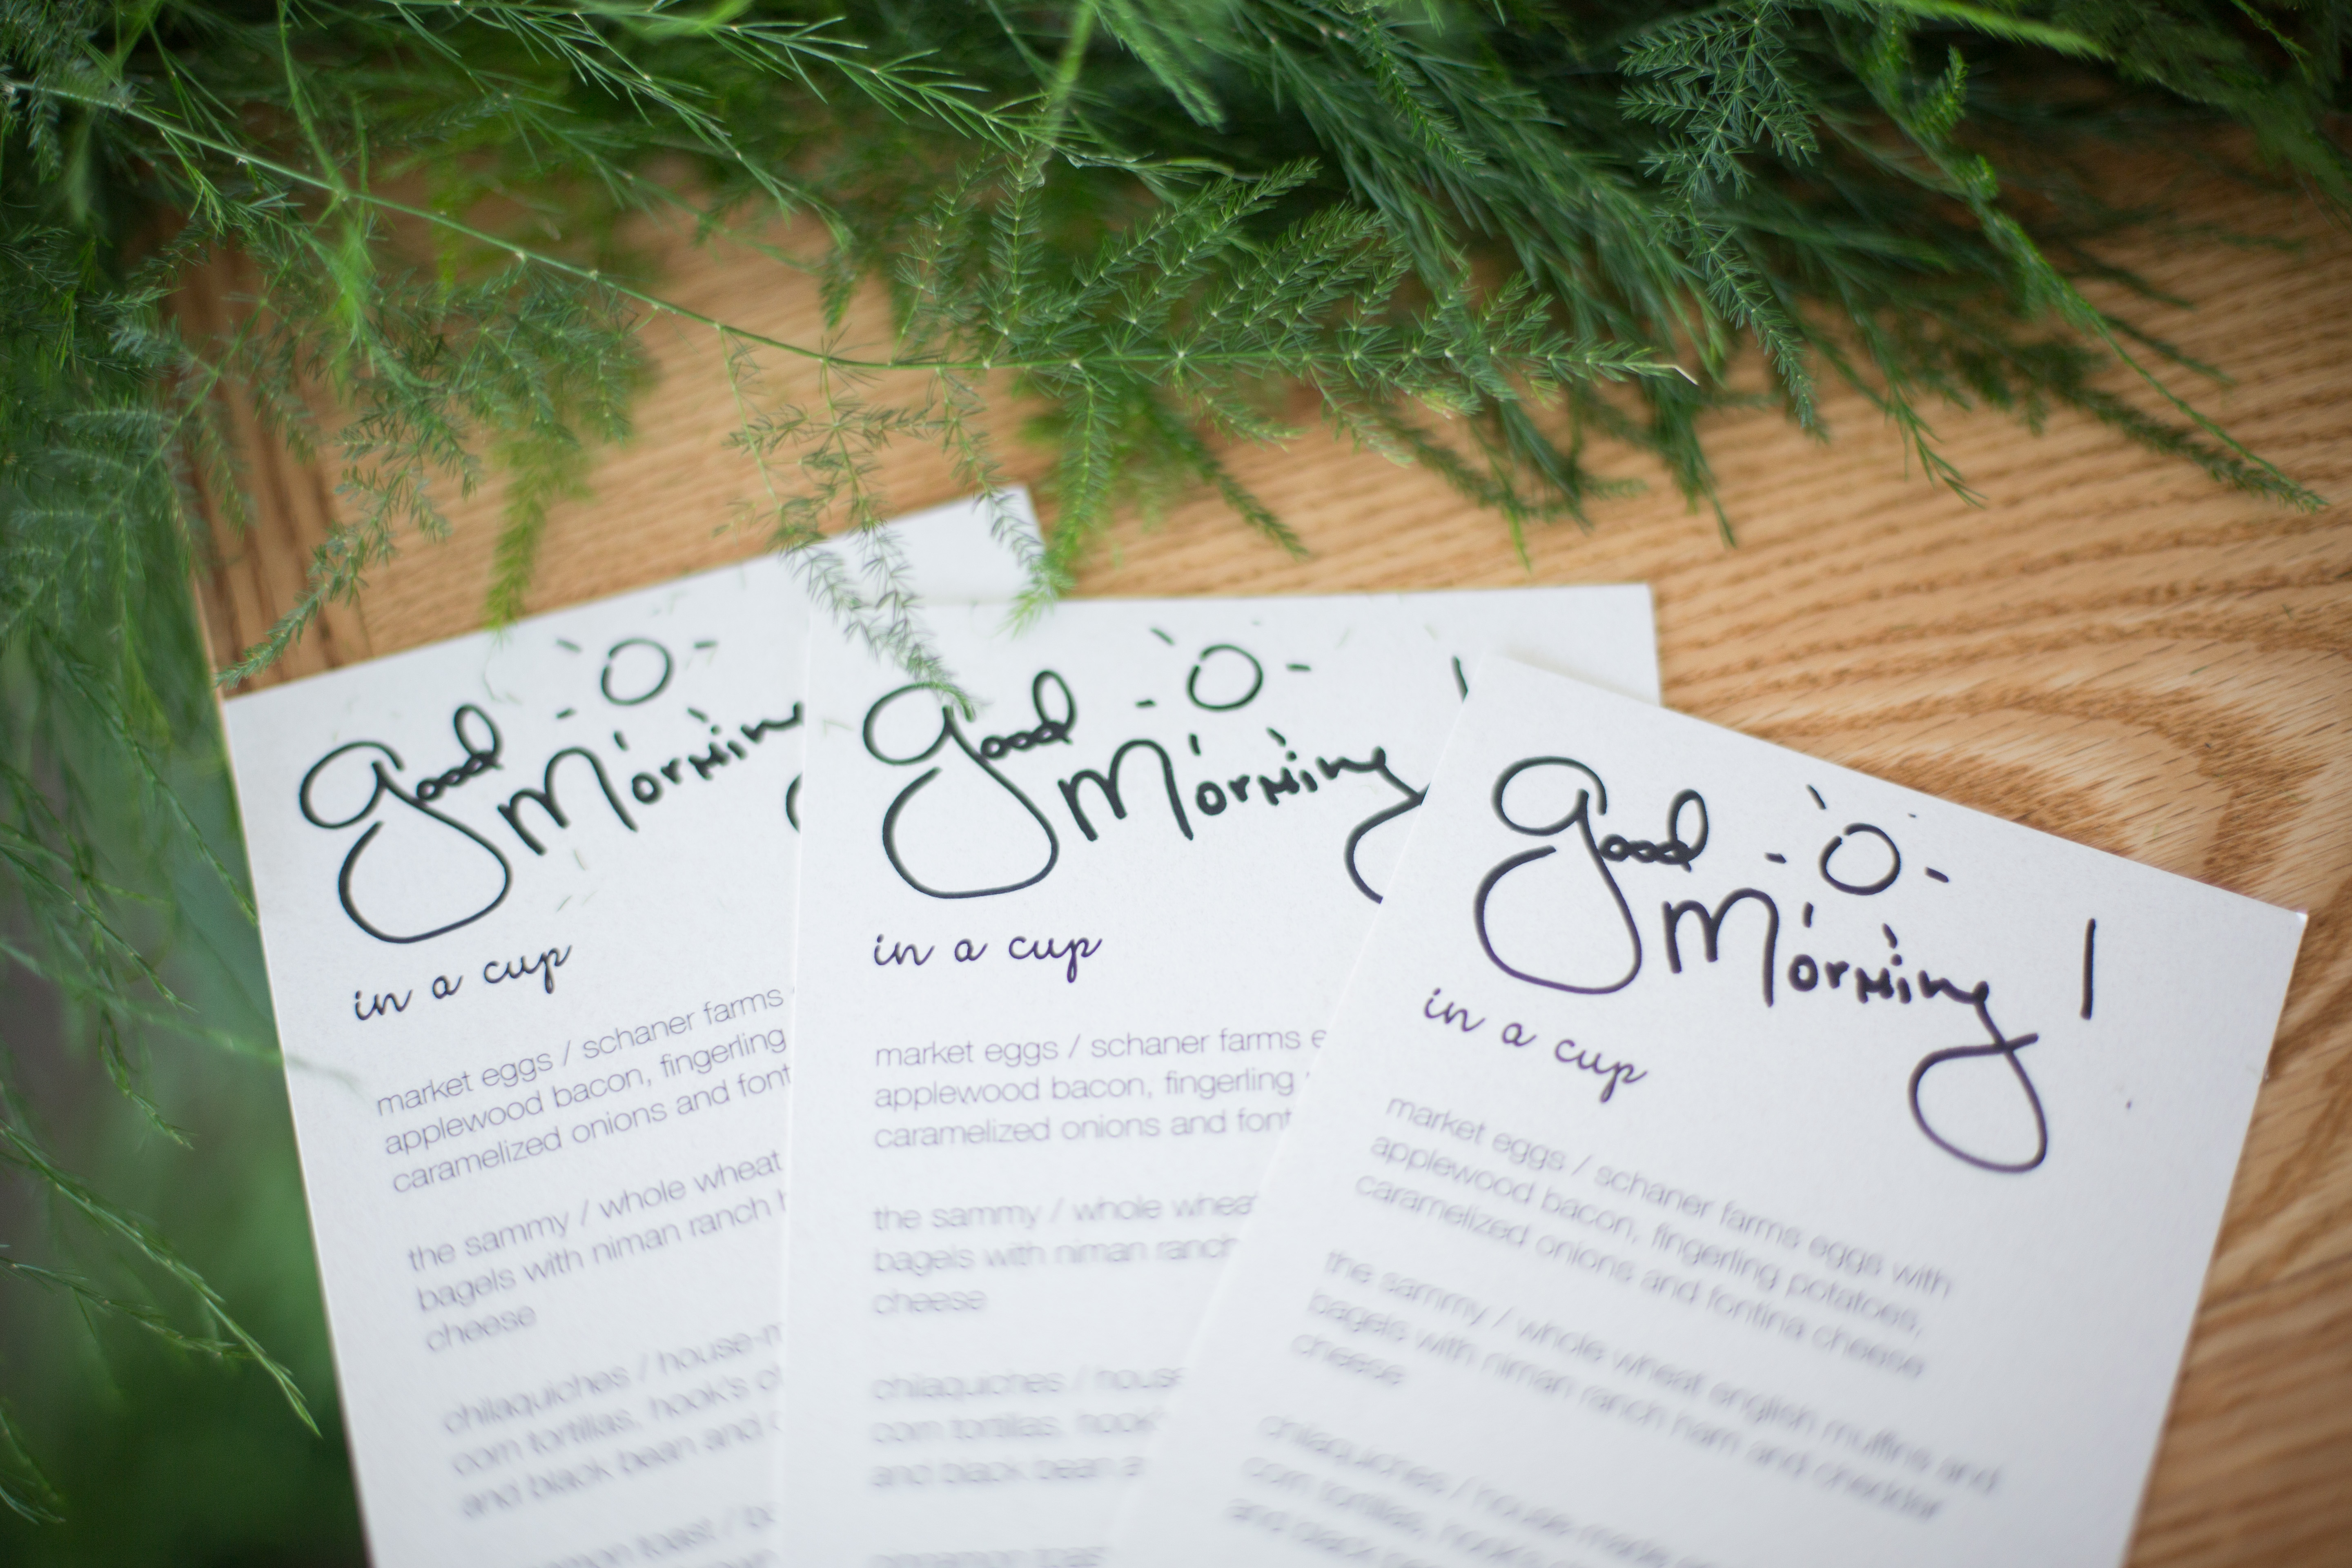 Good
Morning
in a cup
market eggs / schaner farms
applewood bacon, fingerling
caramelized onions and font
the sammy / whole wheat
bagels with niman ranch
cheese
chilaquiches / house-m
corn tortillas, hook's
and black bean and
toast /
Good
Morning
in a cup
market eggs / schaner farms e
applewood bacon, fingerling
caramelized onions and font
the sammy / whole wheat
bagels with niman ranch
cheese
chilaquiches / house
corn tortillas, hook's
and black bean a
cinnamon toast
Good
Morning!
in a cup
market eggs / schaner farms eggs with
applewood bacon, fingerling potatoes,
caramelized onions and fontina cheese
the sammy / whole wheat english muffins and
bagels with niman ranch ham and cheddar
cheese
chilaquiches / house-made
corn tortillas, hook's
and black